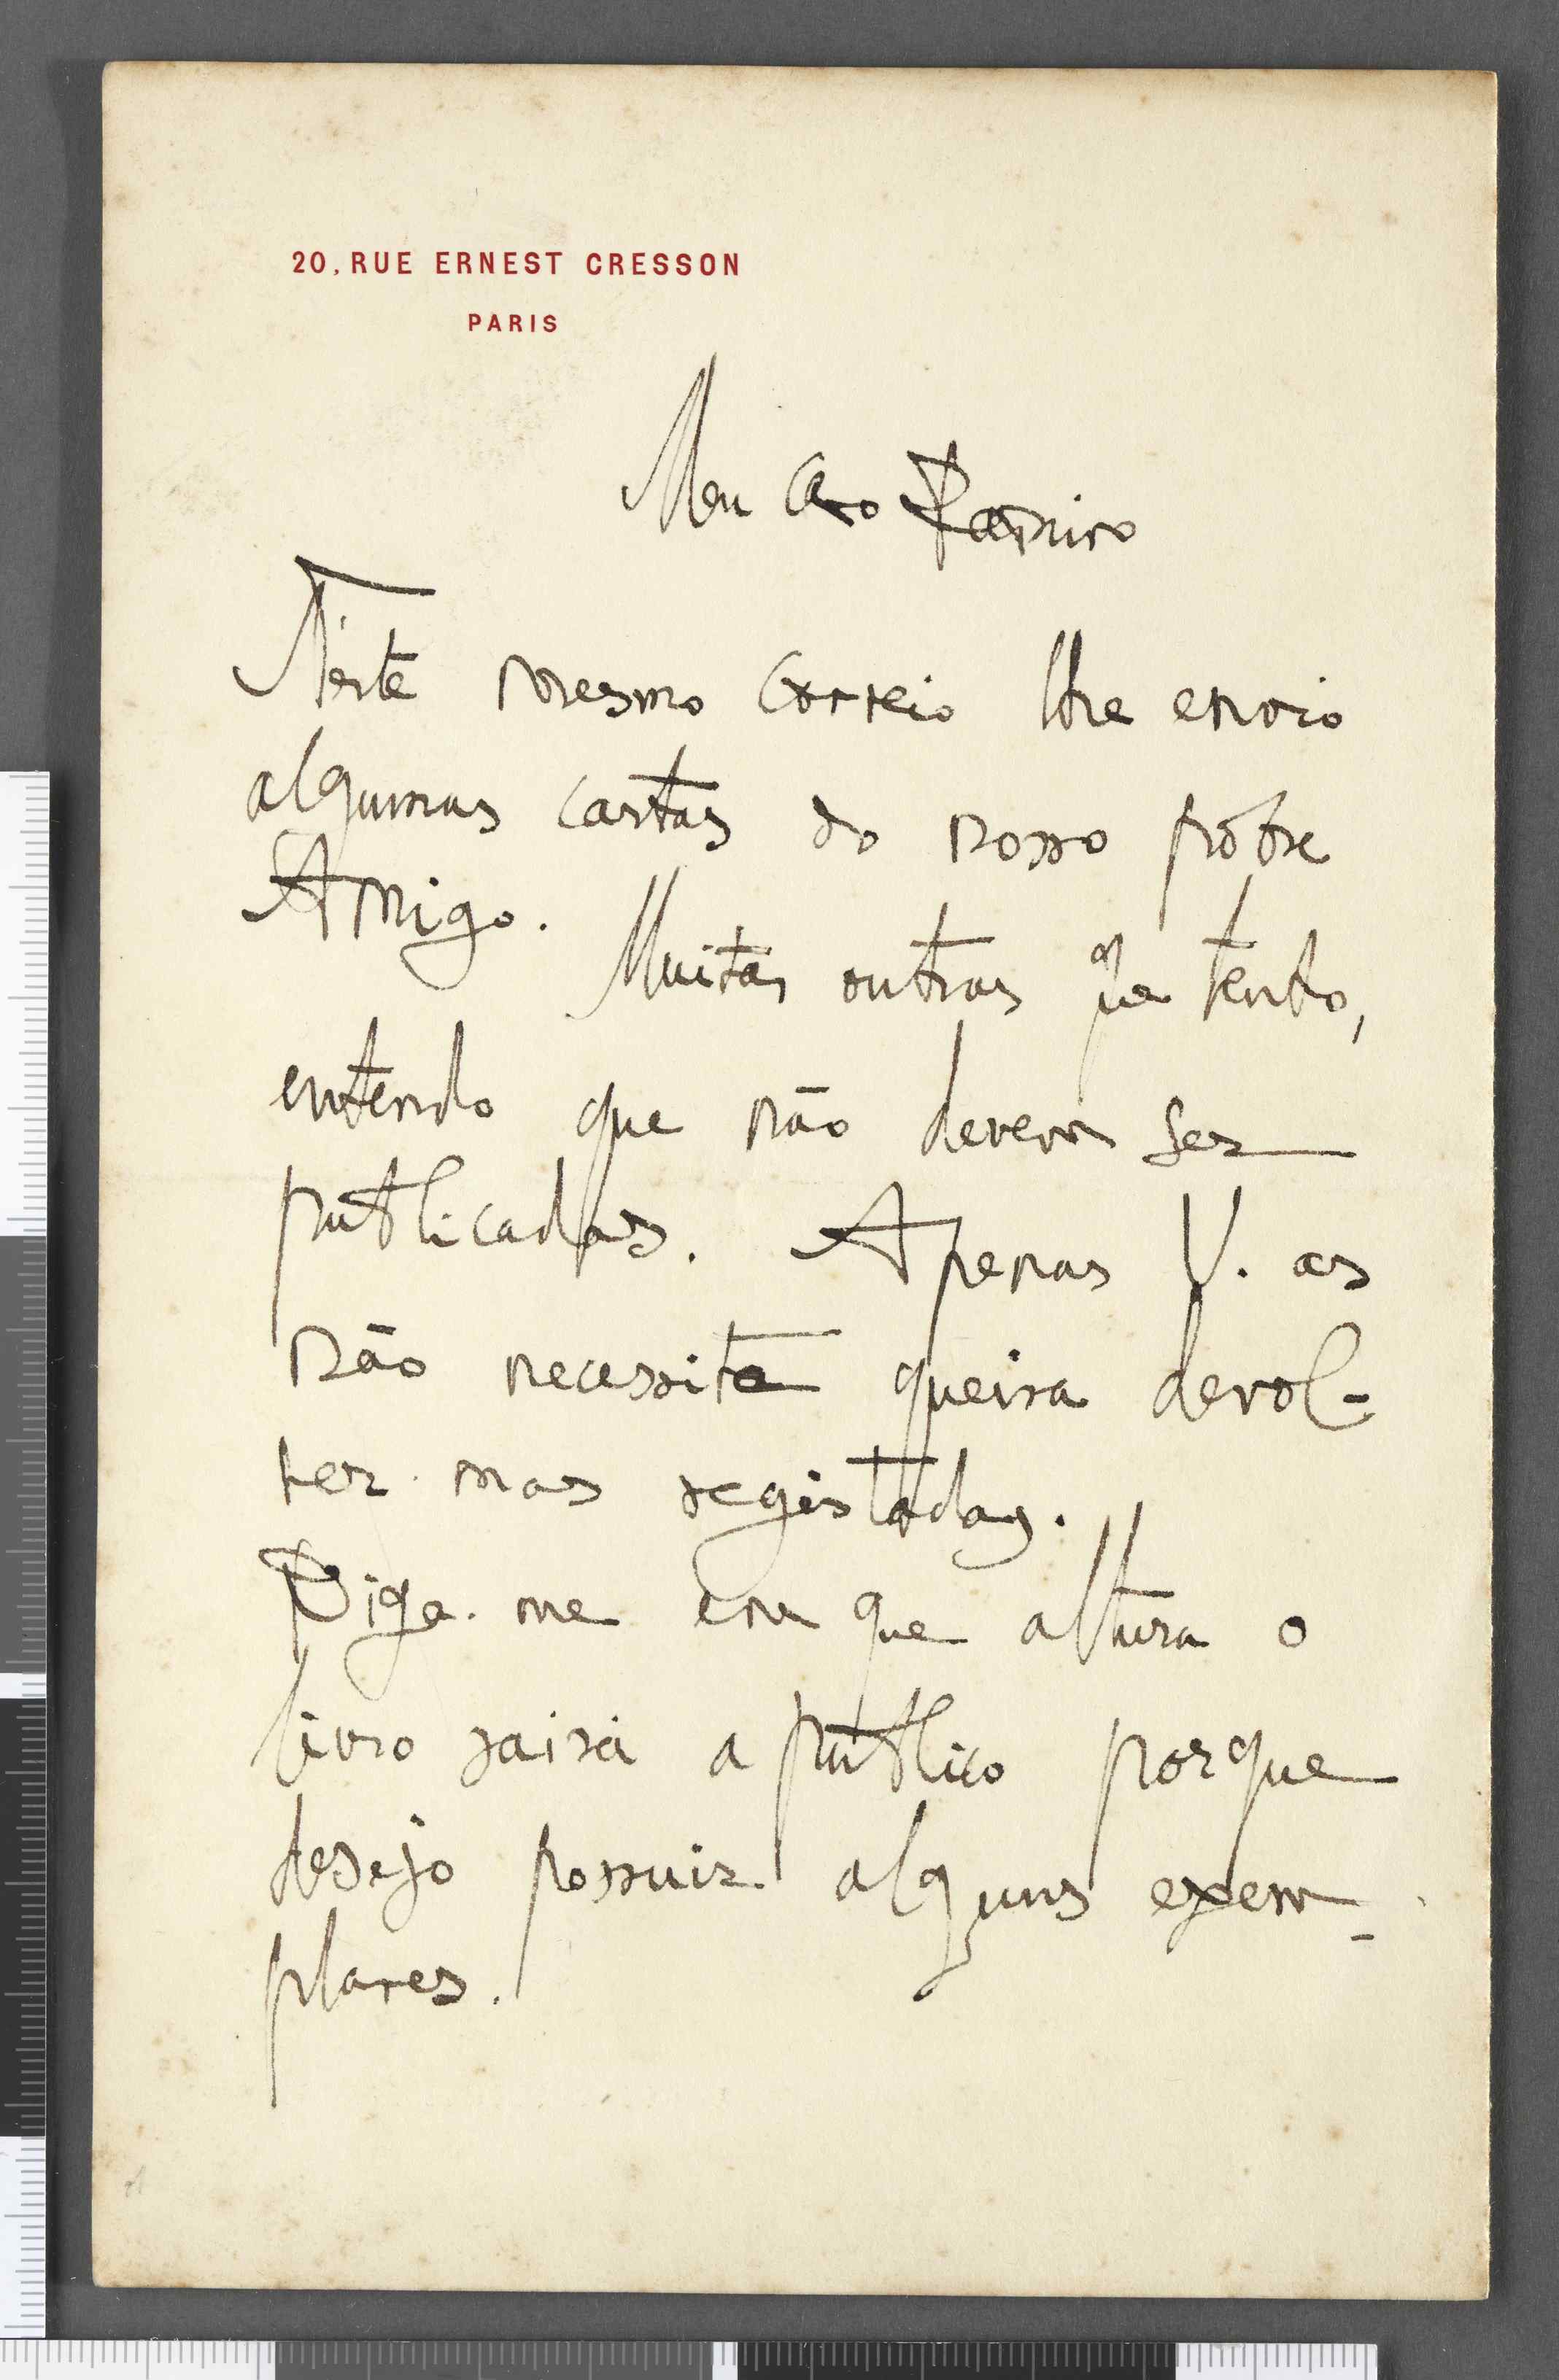 20, RUE ERNEST CRESSON
PARIS
Meu Caro Ramiro
N'este mesmo correio lhe envio
algumas cartas do nosso pobre
Amigo. Muitas outras que tenho,
entendo que não devem ser
publicadas. Apenas V. as
não necessite queira devol-
ver-mas registadas.
Diga-me em que altura o
livro sairá a público porque
desejo possuir alguns exem-
plares.